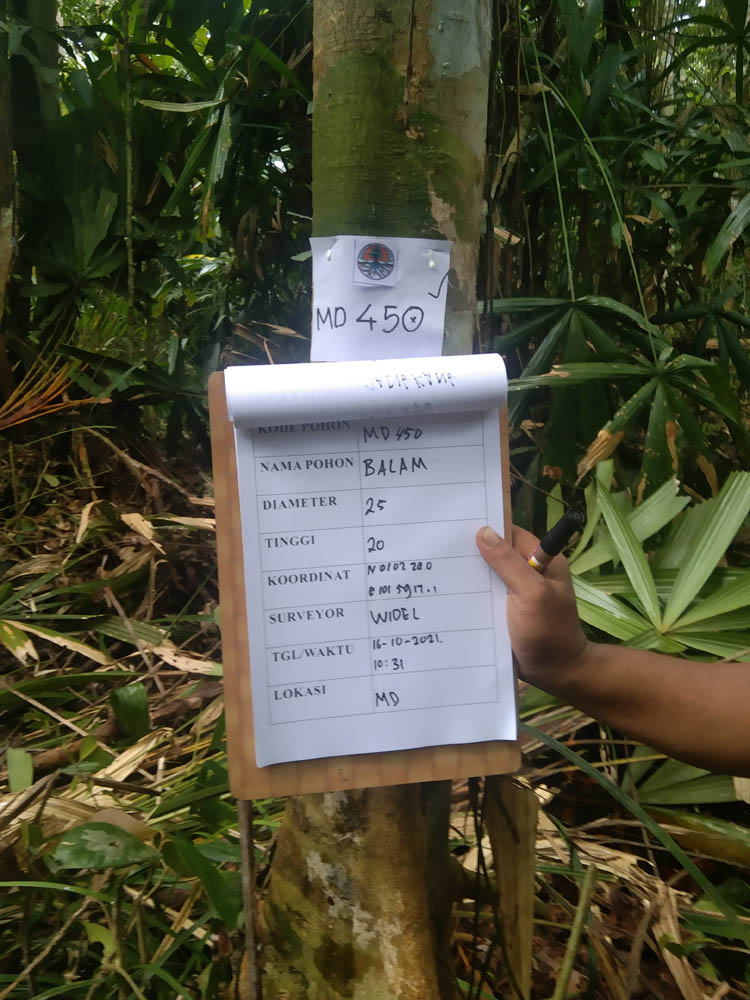 MD 450
KODE POHON MD 450
NAMA POHON BALAM
DIAMETER 25
TINGGI 20
KOORDINAT N 01 02 28.0
E 101 59 17.1
SURVEYOR WIDEL
TGL/WAKTU 16-10-2021.
10:31
LOKASI MD